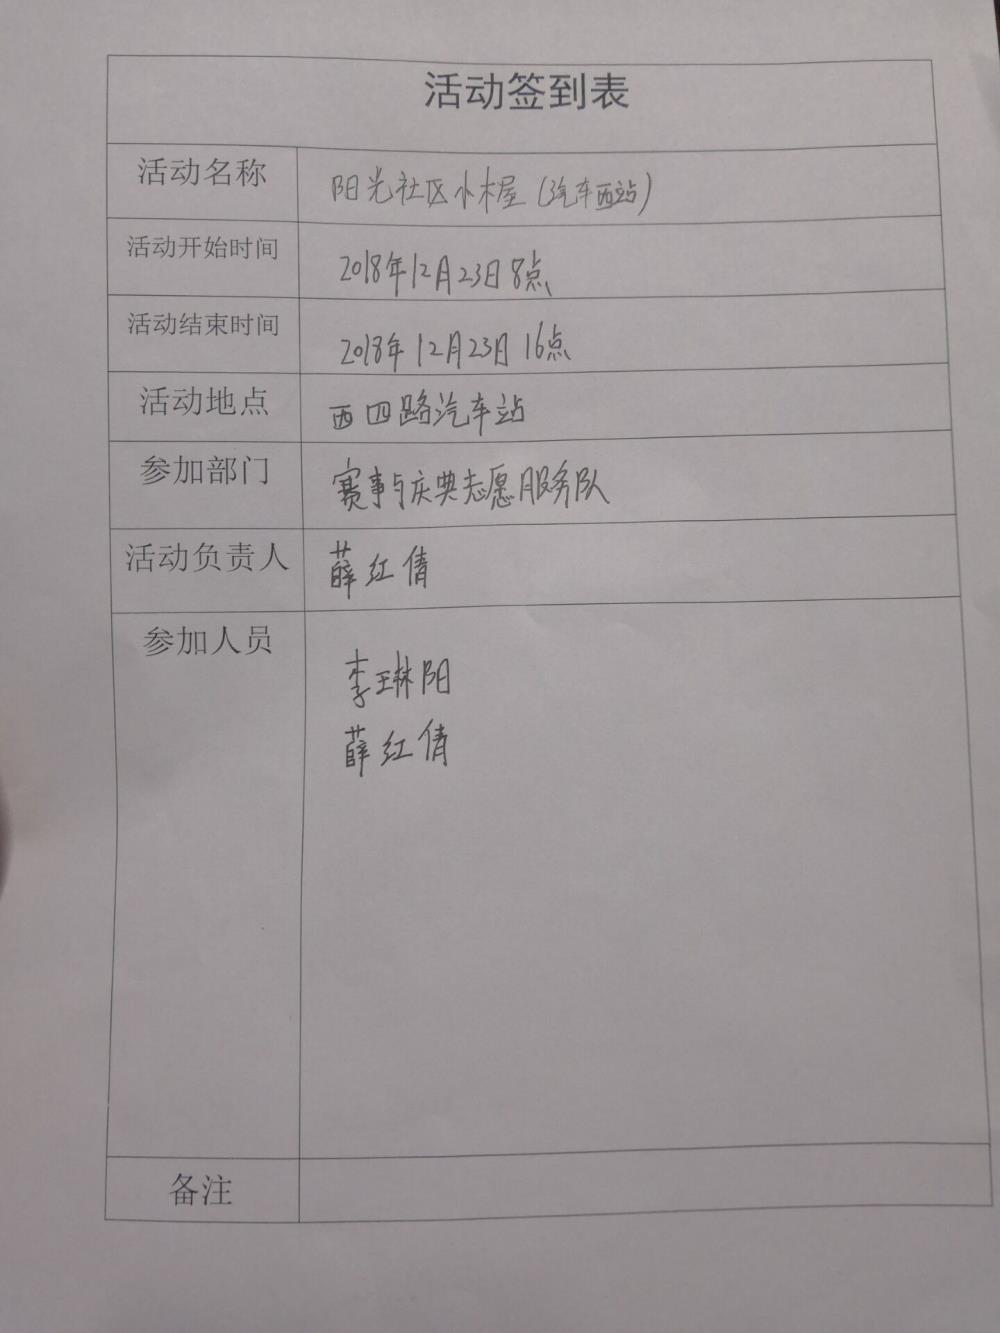 活动签到表
活动名称 阳光社区小木屋（汽车西站）
活动开始时间 2018年12月23日8点
活动结束时间 2018年12月23日16点
活动地点 西四路汽车站
参加部门 赛事与庆典志愿服务队
活动负责人 薛红倩
参加人员 李琳阳
薛红倩
备注